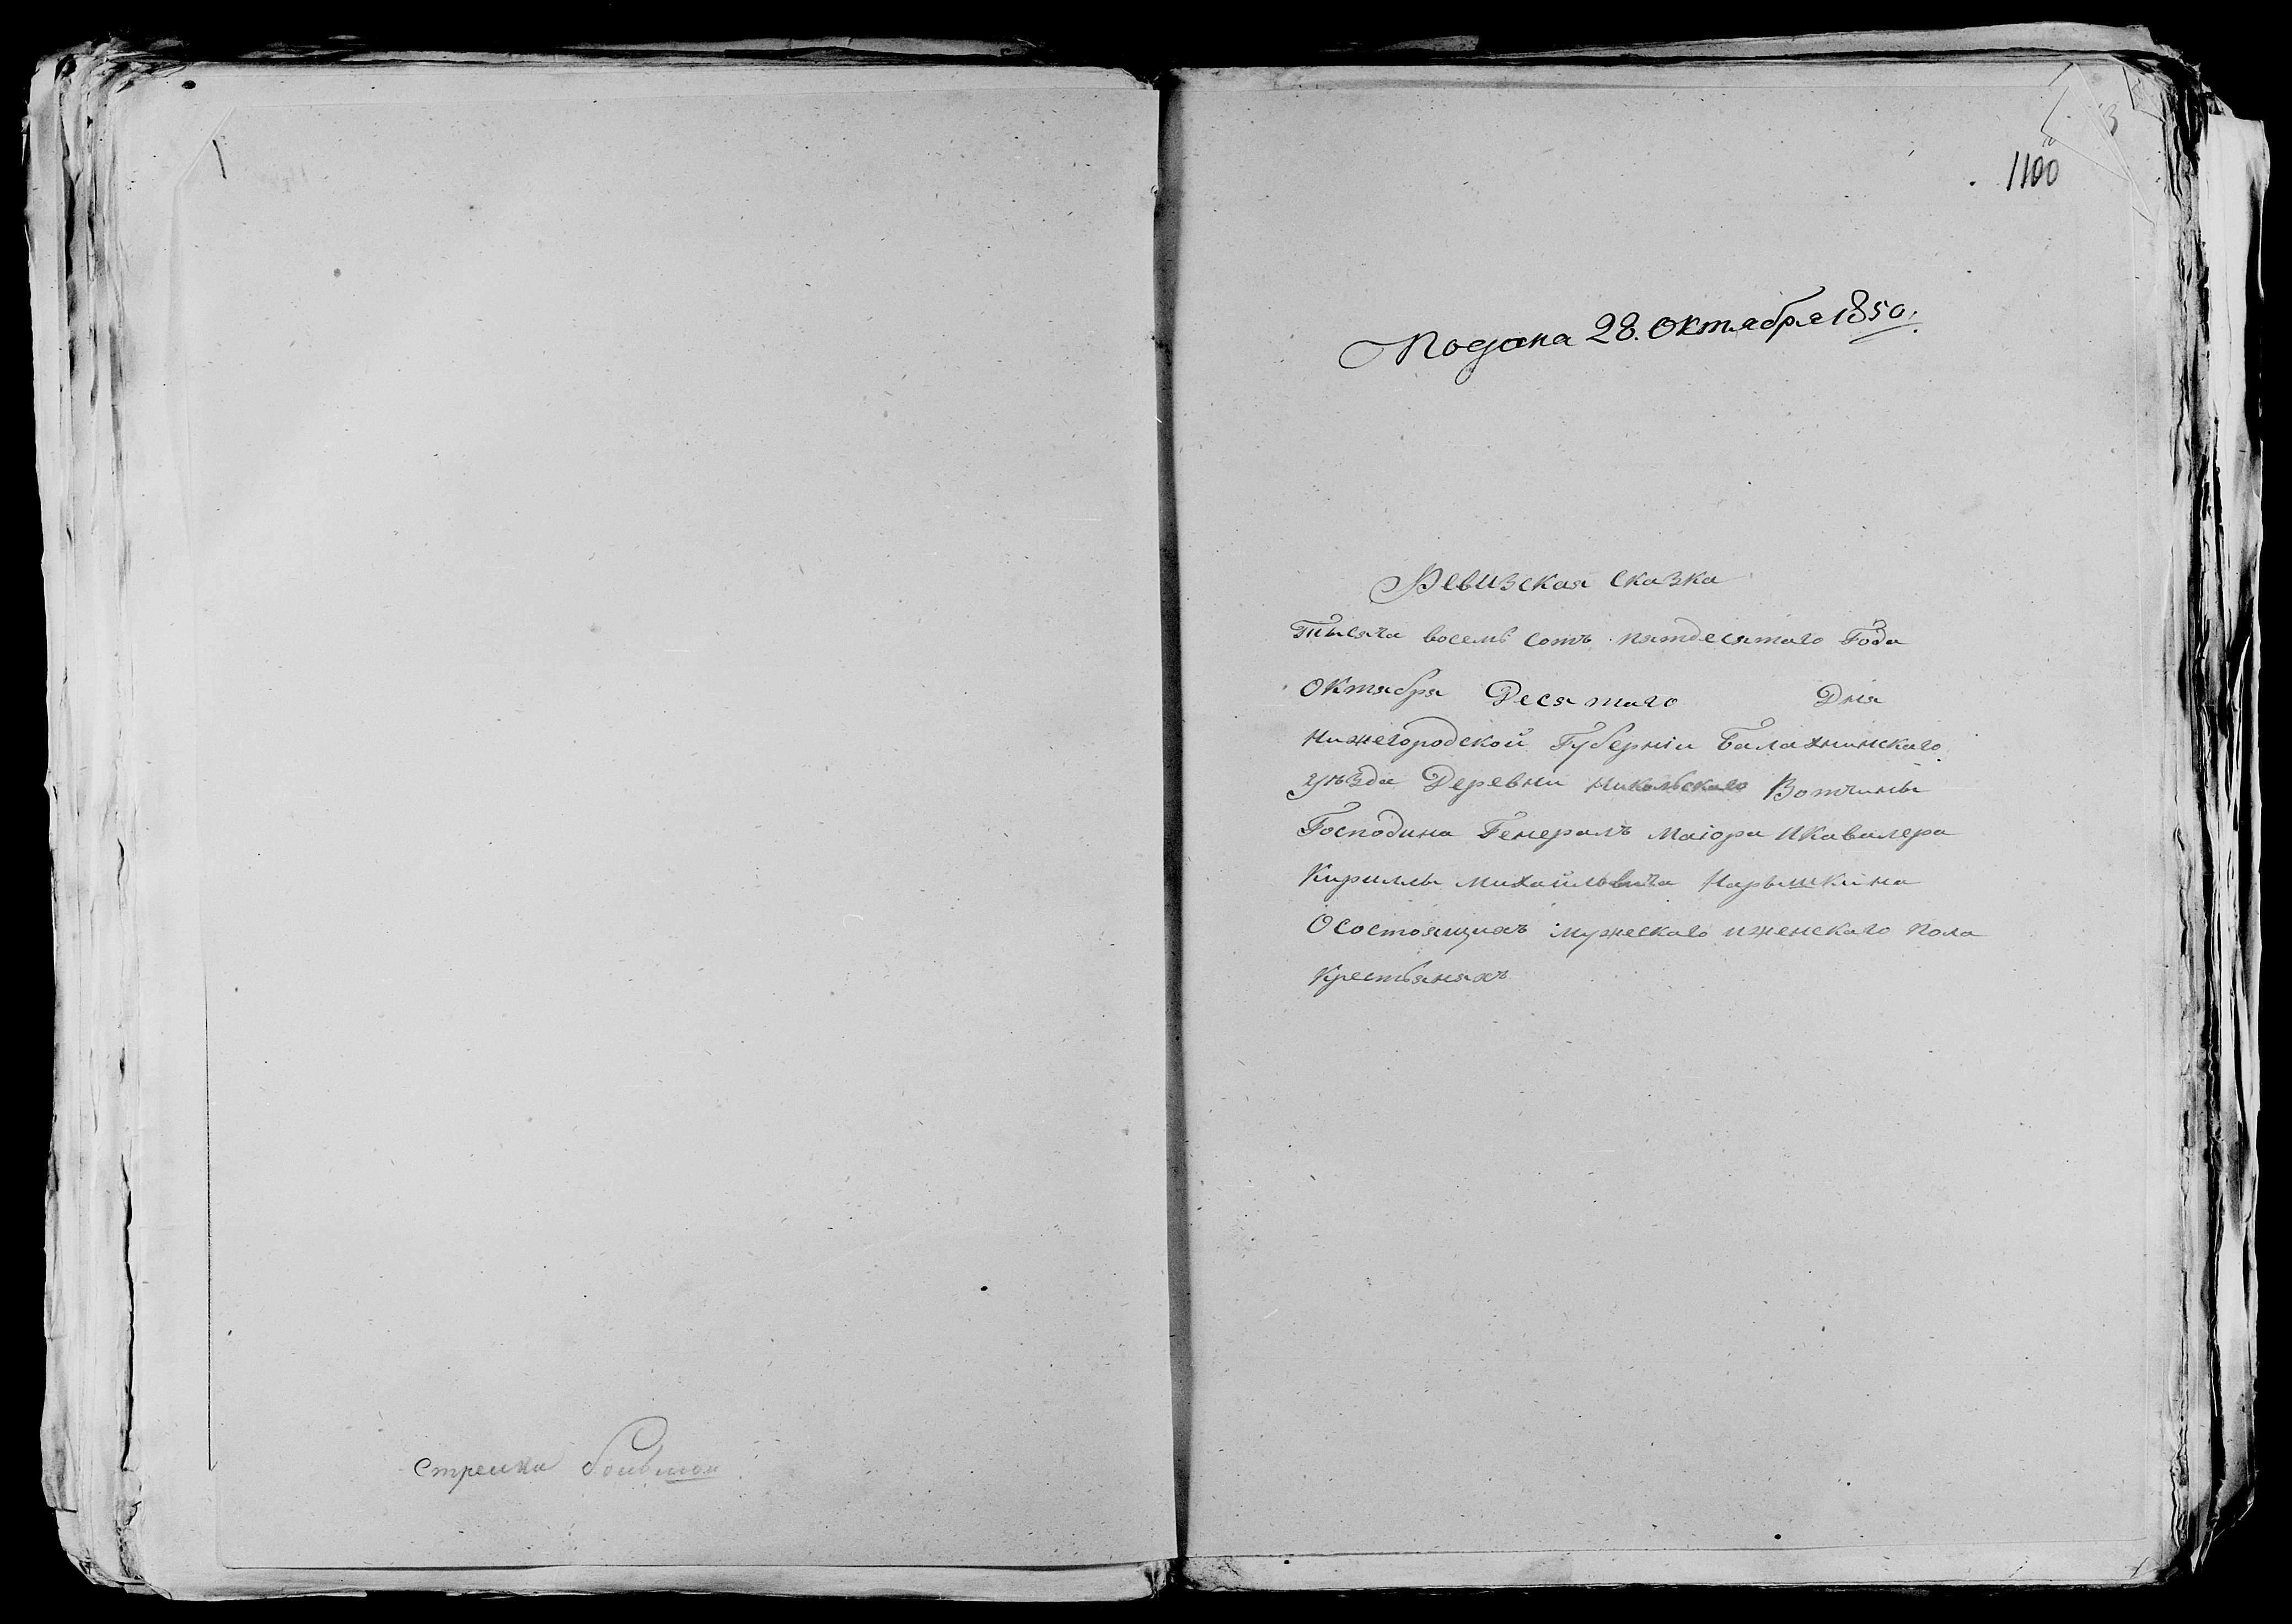 Стрелки Большой
1100
Подана 28. Октября 1850.
Ревизская сказка
Тысяча восемь сотъ пятдесятаго Года
Октября Десятаго Дня
Нижегородской Губерніи Балахнинскаго
уѣзда Деревни Никольскаго Вотчины
Господина Генералъ Маіора Икавалера
Кириллы Михайловича Нарышкина
Осостоящихъ мужескаго иженскаго пола
Крестьянахъ